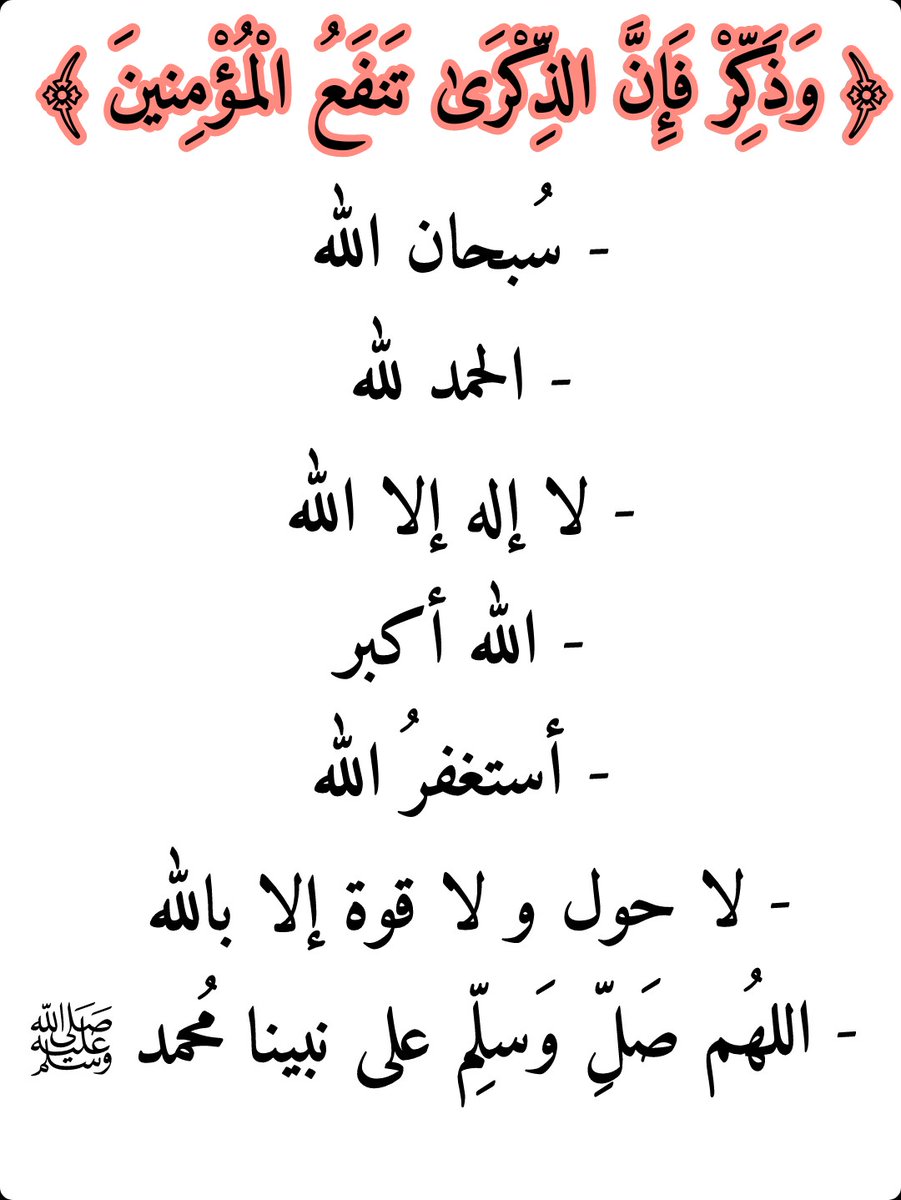 ﴿ وَذَكِّرْ فَإِنَّ الذِّكْرَىٰ تَنفَعُ الْمُؤْمِنِينَ ﴾
- سُبحان الله
- الحمد لله
- لا إله إلا الله
- الله أكبر
- أستغفرُ الله
- لا حول و لا قوة إلا بالله
- اللهُم صَلِّ وَسلِّم على نبينا مُحمد ﷺ